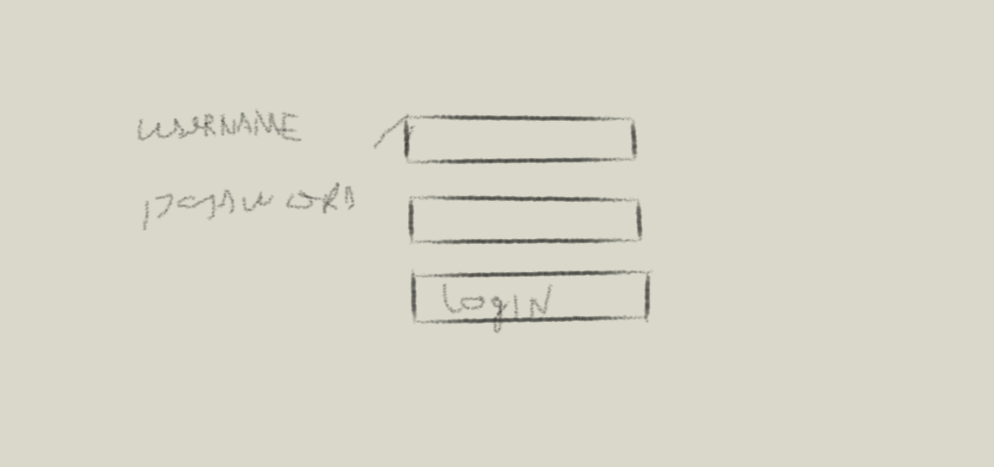 USERNAME
PASSWORD
LogIN